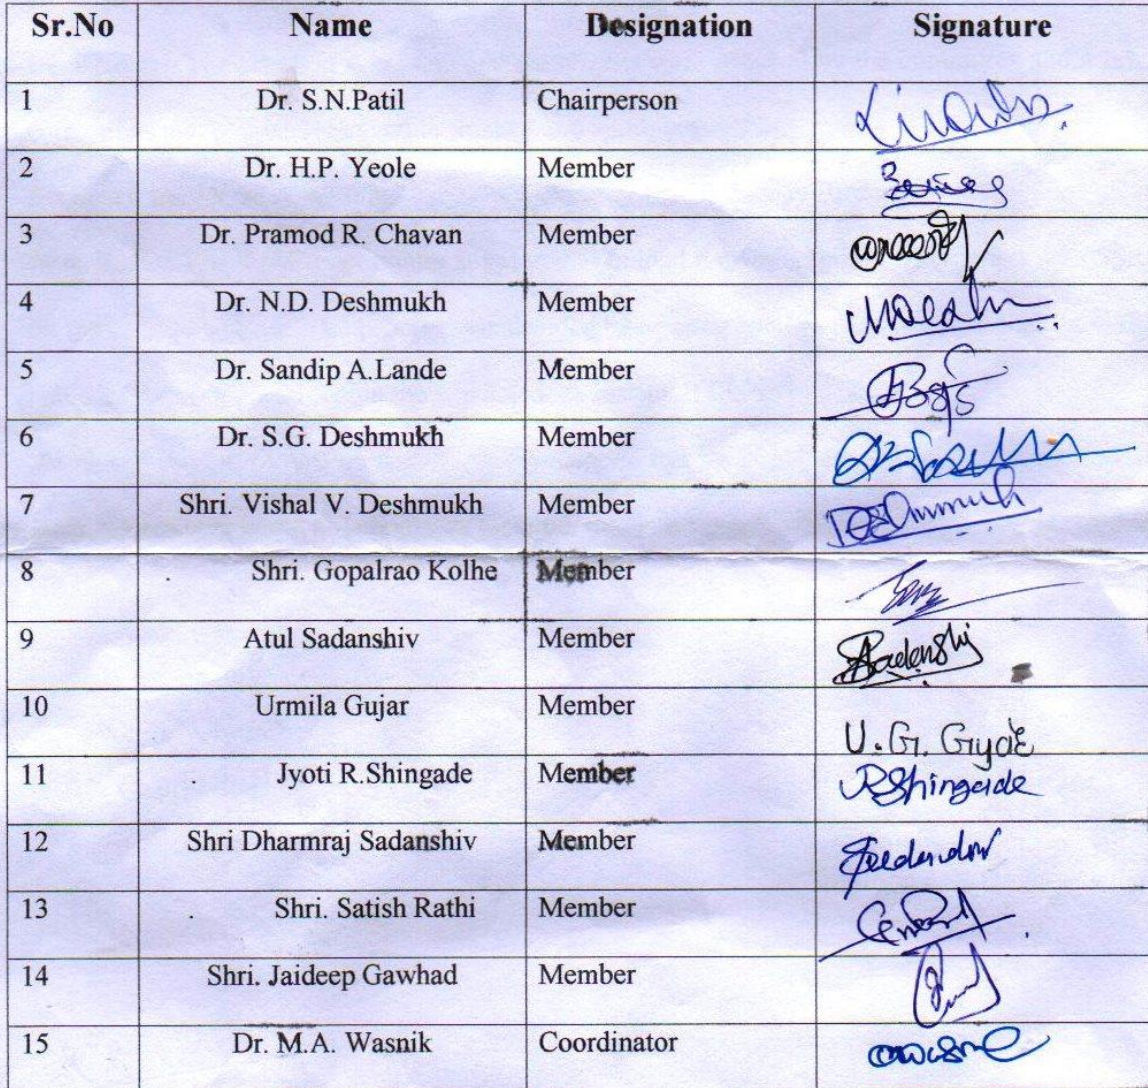 Sr.No Name Designation Signature
1 Dr. S.N.Patil Chairperson
2 Dr. H.P. Yeole Member
3 Dr. Pramod R. Chavan Member
4 Dr. N.D. Deshmukh Member
5 Dr. Sandip A.Lande Member
6 Dr. S.G. Deshmukh Member
7 Shri. Vishal V. Deshmukh Member
8 . Shri. Gopalrao Kolhe Member
9 Atul Sadanshiv Member
10 Urmila Gujar Member U. G.
11 Jyoti R.Shingade Member RShingade
12 Shri Dharmraj Sadanshiv Member
13 . Shri. Satish Rathi Member
14 Shri. Jaideep Gawhad Member
15 Dr. M.A. Wasnik Coordinator